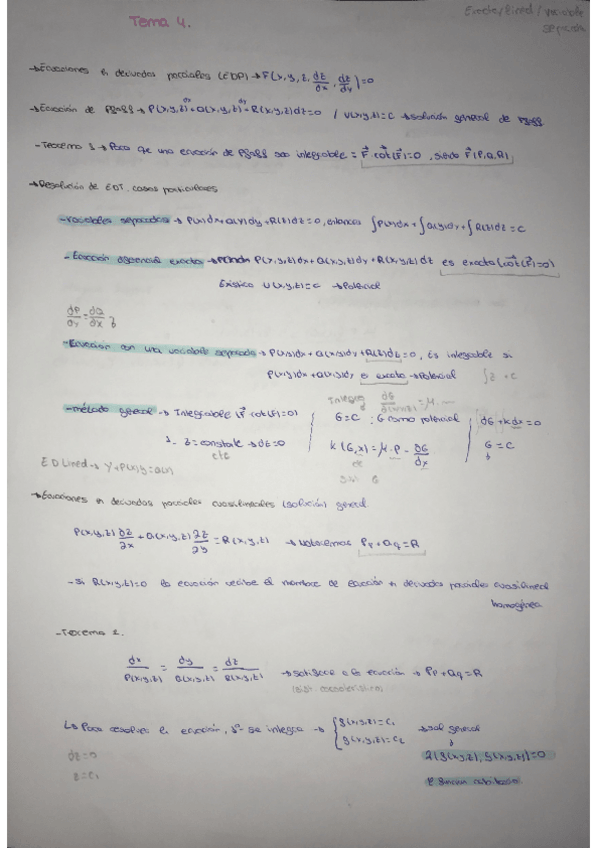 Exacta/lineal/variable
separada
Tema 4.
→ Ecuaciones en derivadas parciales (EDP) → F(x,y,z, dz/dx, dz/dy)=0
→ Ecuación de Pfaff → P(x,y,z)dx+Q(x,y,z)dy+R(x,y,z)dz=0 / U(x,y,z)=C → solución general de Pfaff
- Teorema 1 → Para que una ecuación de Pfaff sea integrable = F⃗·rot(F⃗)=0, siendo F⃗(P,Q,R)
→ Resolución de EDT. casos particulares
- Variables separadas → P(x)dx+Q(y)dy+R(z)dz=0, entonces ∫P(x)dx+∫Q(y)dy+∫R(z)dz=C
- Ecuación diferencial exacta → P(x,y,z)dx+Q(x,y,z)dy+R(x,y,z)dz es exacta (rot(F⃗)=0)
Existirá U(x,y,z)=C → Potencial
dP/dy = dQ/dx
- Ecuación con una variable separada → P(x,y)dx+Q(x,y)dy+R(z)dz=0, Es integrable si
P(x,y)dx+Q(x,y)dy es exacta → Potencial ∫z +C
- método general → Integrable (F⃗·rot(F⃗)=0)
G=C : G como potencial
dG+kdz=0
1. z=constante → dz=0
etc
k(G,z)=μ·P - dG/dx
G=C
ED Lineal → Y'+P(x)y=Q(x)
→ Ecuaciones en derivadas parciales cuasilineales (solución) general
P(x,y,z) ∂z/∂x + Q(x,y,z) ∂z/∂y = R(x,y,z) → notaremos Pp+Qq=R
- Si R(x,y,z)=0 la ecuación recibe el nombre de ecuación en derivadas parciales cuasilineal
homogénea
- Teorema 2.
dx/P(x,y,z) = dy/Q(x,y,z) = dz/R(x,y,z) → satisface a la ecuación → Pp+Qq=R
(sist. característico)
↳ Para resolver la ecuación, 1º se integra → { f(x,y,z)=C₁ → sol general
g(x,y,z)=C₂
dz=0
z=C₁
(f(x,y,z), g(x,y,z))=0
función arbitraria